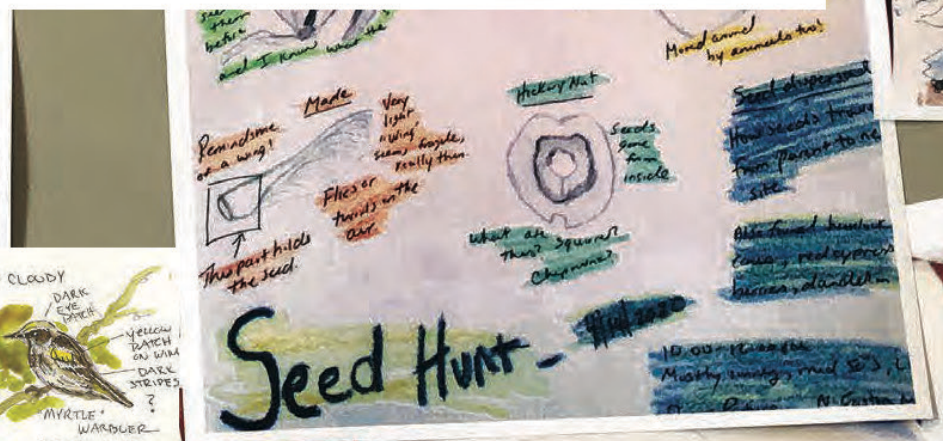 see
them
before
and I know what the
Moved around
by animals too!
Made
Reminds me
of a wing!
Very
light
"wing"
seems fragile,
really thin.
Flies or
twirls in the
air.
This part holds
the seed.
Hickory Nut
Seeds
come from
inside
what ate
this? Squirrel?
Chipmunk?
Seed dispersal
How seeds travel
from parent to ne
site.
Also found hemlock
cones, red cypress
berries, dandelion
Seed Hunt -
Mostly sunny, mid 50's,
CLOUDY
DARK
EYE
PATCH
YELLOW
PATCH
ON WING
DARK
STRIPES
?
MYRTLE
WARBLER